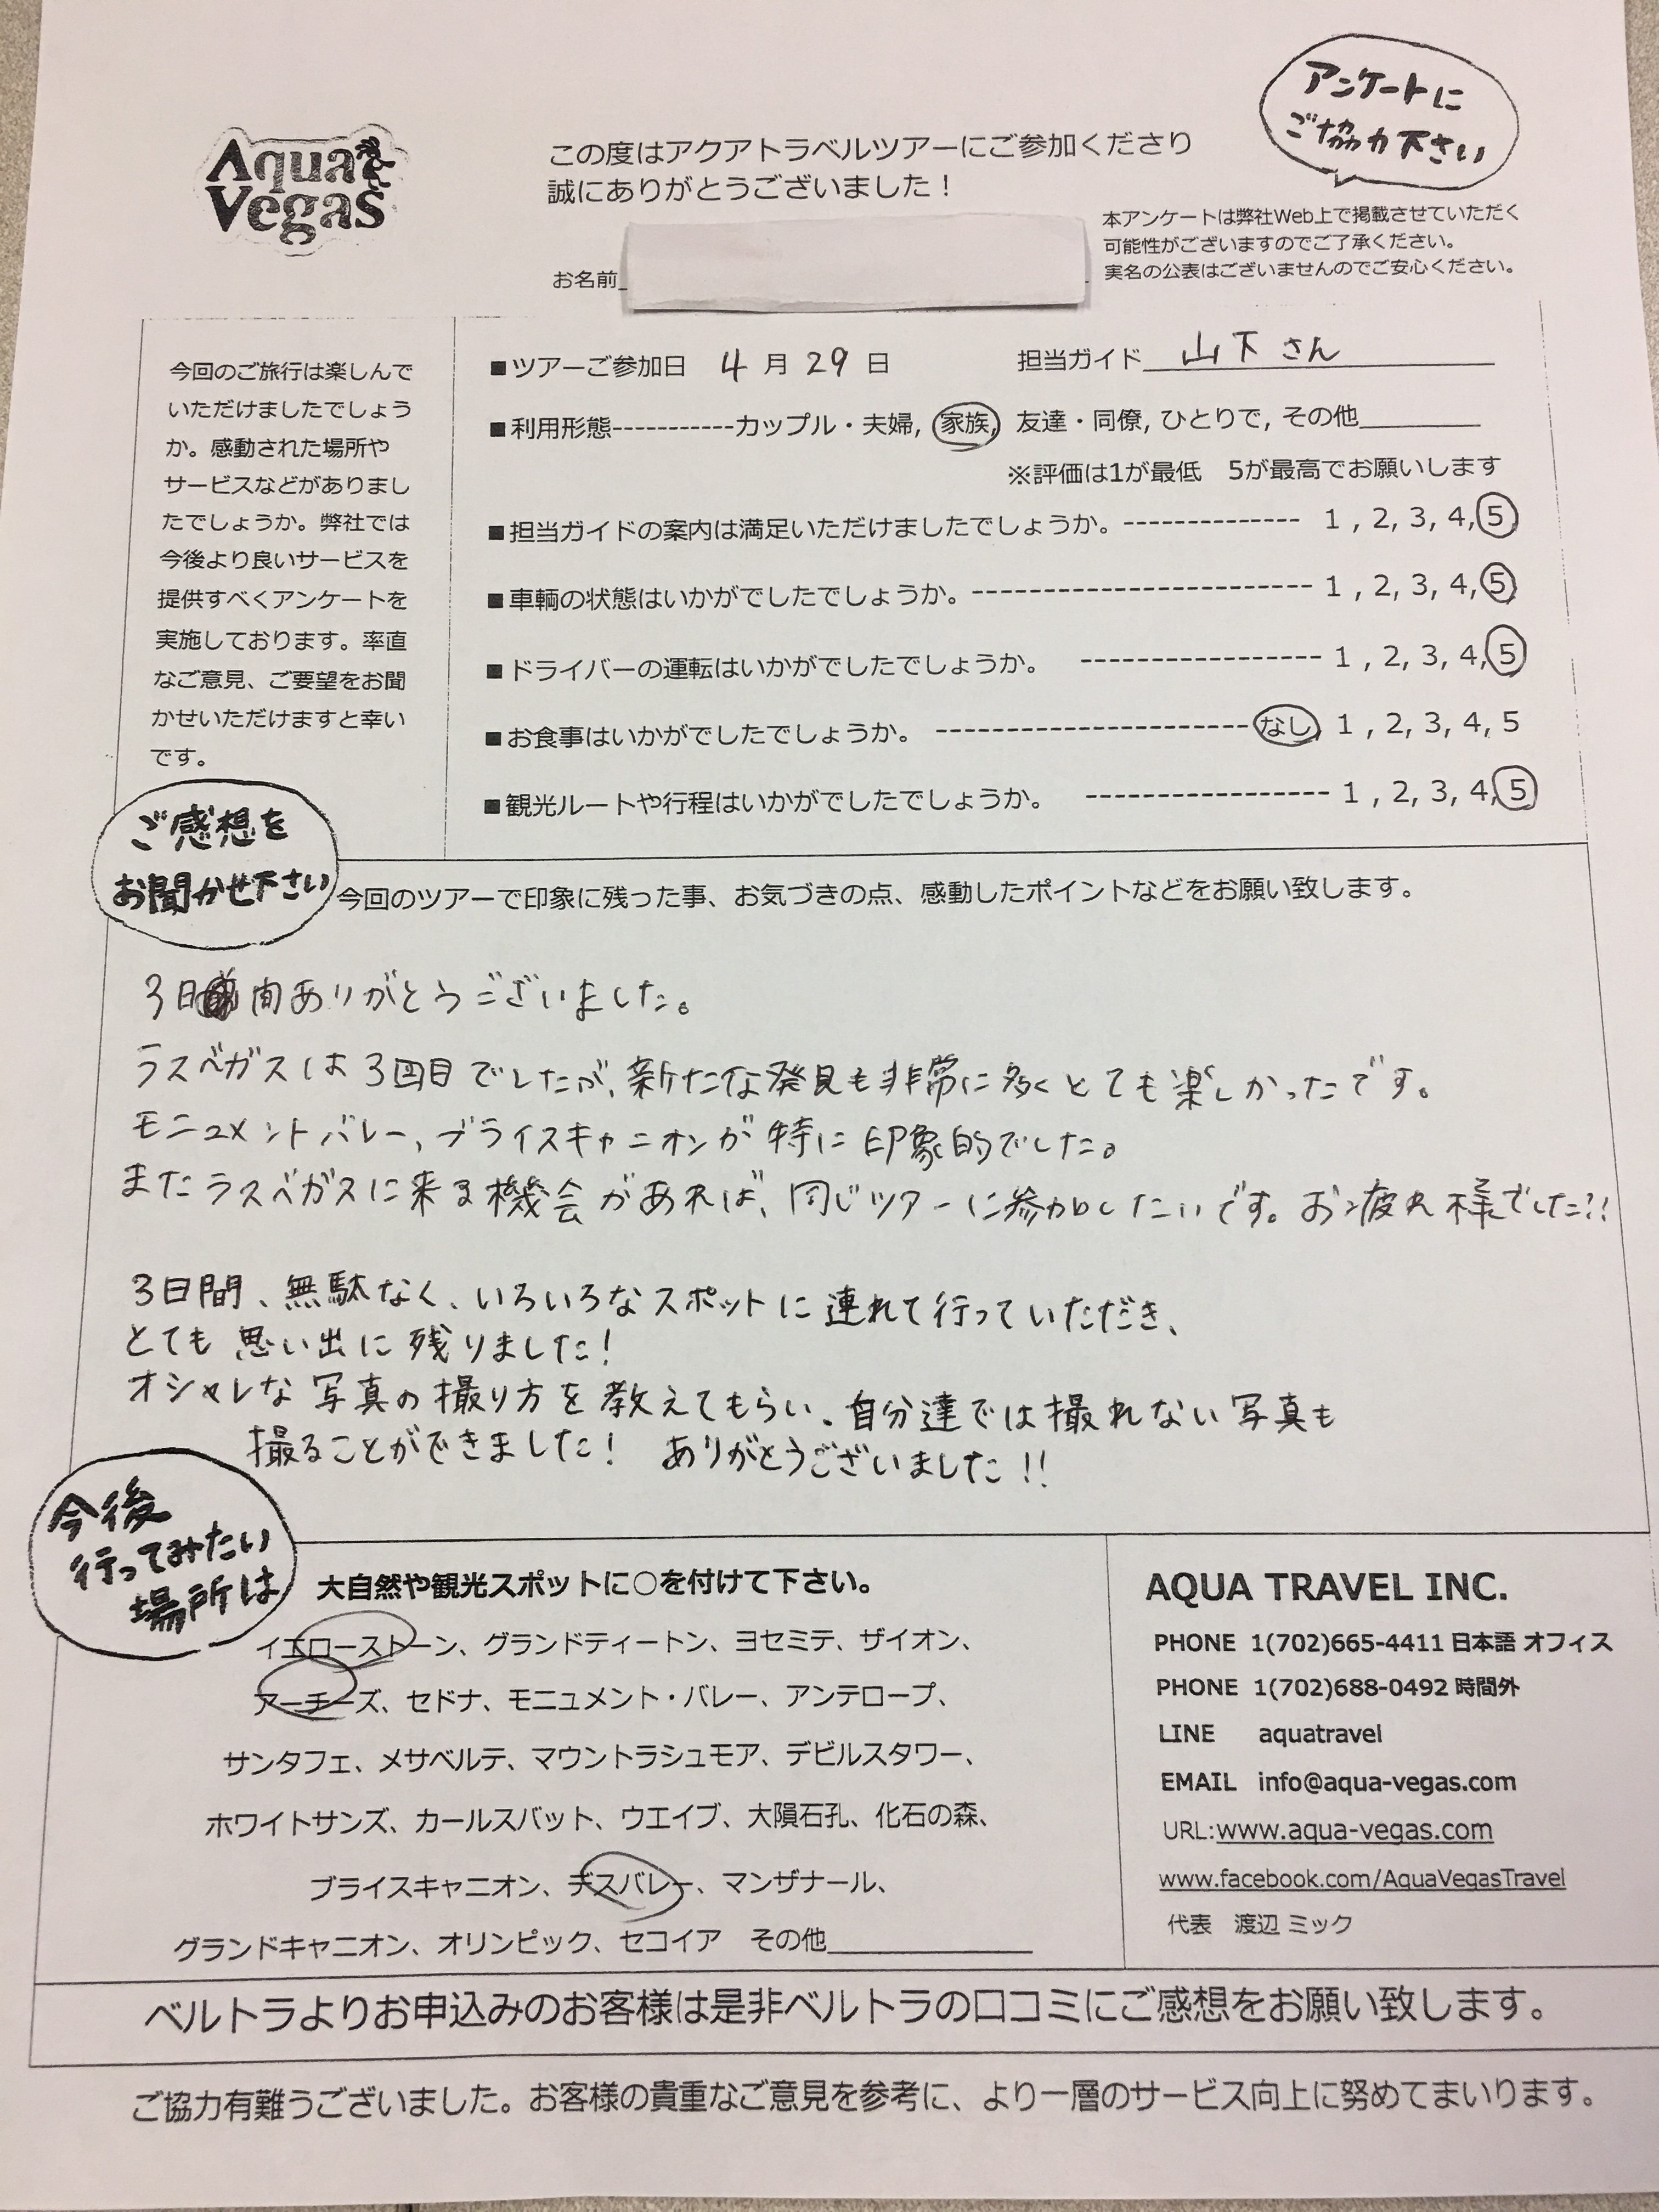 アンケートに
ご協力下さい
Aqua
Vegas
この度はアクアトラベルツアーにご参加くださり
誠にありがとうございました！
本アンケートは弊社Web上で掲載させていただく
可能性がございますのでご了承ください。
実名の公表はございませんのでご安心ください。
お名前
今回のご旅行は楽しんで
いただけましたでしょう
か。感動された場所や
サービスなどがありまし
たでしょうか。弊社では
今後より良いサービスを
提供すべくアンケートを
実施しております。率直
なご意見、ご要望をお聞
かせいただけますと幸い
です。
■ツアーご参加日 4月29日 担当ガイド 山下さん
■利用形態-----------カップル・夫婦, 家族, 友達・同僚, ひとりで, その他
※評価は1が最低 5が最高でお願いします
■担当ガイドの案内は満足いただけましたでしょうか。-------------- 1 , 2, 3, 4, 5
■車輌の状態はいかがでしたでしょうか。--------------------------- 1 , 2, 3, 4, 5
■ドライバーの運転はいかがでしたでしょうか。 ------------------- 1 , 2, 3, 4, 5
■お食事はいかがでしたでしょうか。 -------------------------なし, 1 , 2, 3, 4, 5
■観光ルートや行程はいかがでしたでしょうか。 ------------------- 1 , 2, 3, 4, 5
ご感想を
お聞かせ下さい
今回のツアーで印象に残った事、お気づきの点、感動したポイントなどをお願い致します。
3日間ありがとうございました。
ラスベガスは3回目でしたが、新たな発見も非常に多くとても楽しかったです。
モニュメントバレー、ブライスキャニオンが特に印象的でした。
またラスベガスに来る機会があれば、同じツアーに参加したいです。お疲れ様でした!!
3日間、無駄なく、いろいろなスポットに連れて行っていただき、
とても思い出に残りました！
オシャレな写真の撮り方を教えてもらい、自分達では撮れない写真も
撮ることができました！ ありがとうございました!!
今後
行ってみたい
場所は
大自然や観光スポットに○を付けて下さい。
イエローストーン、グランドティートン、ヨセミテ、ザイオン、
アーチーズ、セドナ、モニュメント・バレー、アンテロープ、
サンタフェ、メサベルテ、マウントラシュモア、デビルスタワー、
ホワイトサンズ、カールスバット、ウエイブ、大隕石孔、化石の森、
ブライスキャニオン、デスバレー、マンザナール、
グランドキャニオン、オリンピック、セコイア その他
AQUA TRAVEL INC.
PHONE 1(702)665-4411 日本語 オフィス
PHONE 1(702)688-0492 時間外
LINE aquatravel
EMAIL info@aqua-vegas.com
URL:www.aqua-vegas.com
www.facebook.com/AquaVegasTravel
代表 渡辺 ミック
ベルトラよりお申込みのお客様は是非ベルトラの口コミにご感想をお願い致します。
ご協力有難うございました。お客様の貴重なご意見を参考に、より一層のサービス向上に努めてまいります。